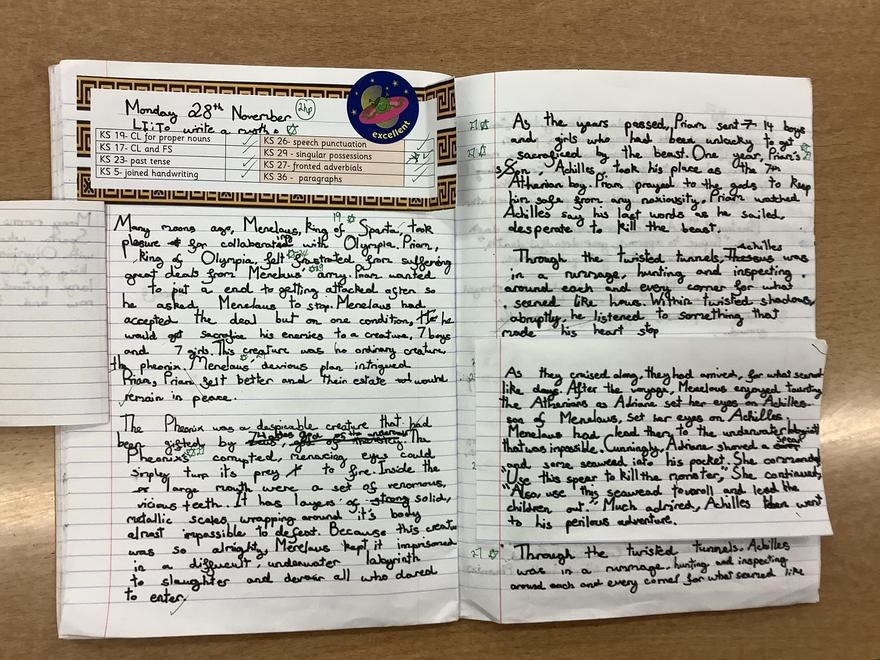 Monday 28th November
2hp
LI: To write a myth.
excellent
KS 19- CL for proper nouns
KS 17- CL and FS
KS 23- past tense
KS 5- joined handwriting
KS 26- speech punctuation
KS 29 - singular possessions
KS 27- fronted adverbials
KS 36 - paragraphs
Many moons ago, Menelaus, king of Sparta, took
pleasure for collaborating with Olympia. Priam,
king of Olympia, felt frustrated from suffering
great deals from Menelaus' army. Priam wanted
to put a end to getting attacked often so
he asked Menelaus to stop. Menelaus had
accepted the deal but on one condition, he
would sacrifice his enemies to a creature, 7 boys
and 7 girls. This creature was no ordinary creature,
the pheonix. Menelaus devious plan intrigued
Priam, Priam felt better and their estate would
remain in peace.
The Pheonix was a despicable creature that had
been gifted by The
Pheonix's corrupted, menacing eyes could
simpley turn it's prey to fire. Inside the
large mouth were a set of venomous,
vicious teeth. It has layers of solid,
metallic scales wrapping around it's body
almost impossible to defeat. Because this creature
was so almighty, Menelaus kept it imprisoned
in a difficult, underwater labyrinth
to slaughter and devour all who dared
to enter.
As the years passed, Priam sent 14 boys
and girls who had been unlucky to get
sacraficed by the beast. One year, Priam's
Son, Achilles, took his place as the 7th
Athenian boy. Priam prayed to the gods to keep
him safe from any noxiousity. Priam watched
Achilles say his last words as he sailed,
desperate to kill the beast.
Through the twisted tunnels, Achilles was
in a rummage, hunting and inspecting
around each and every corner for what
seemed like hours. Within twisted shadows,
abruptly, he listened to something that
made his heart stop
As they cruised along, they had arrived, for what seemed
like days. After the voyage, Menelaus enjoyed taunting
the Athenians as Adriane set her eyes on Achilles.
son of Menelaus, set her eyes on Achilles.
Menelaus had lead them to the underwater labyrinth
that was impossible. Cunningly, Adriane shoved a spear
and some seaweed into his pocket. She commanded
"Use this spear to kill the monster," She continued,
"Also use this seawead to and lead the
children out." Much admired, Achilles went
to his perilous adventure.
Through the twisted tunnels, Achilles
was in a rummage, hunting and inspecting
around each and every corner for what seemed like